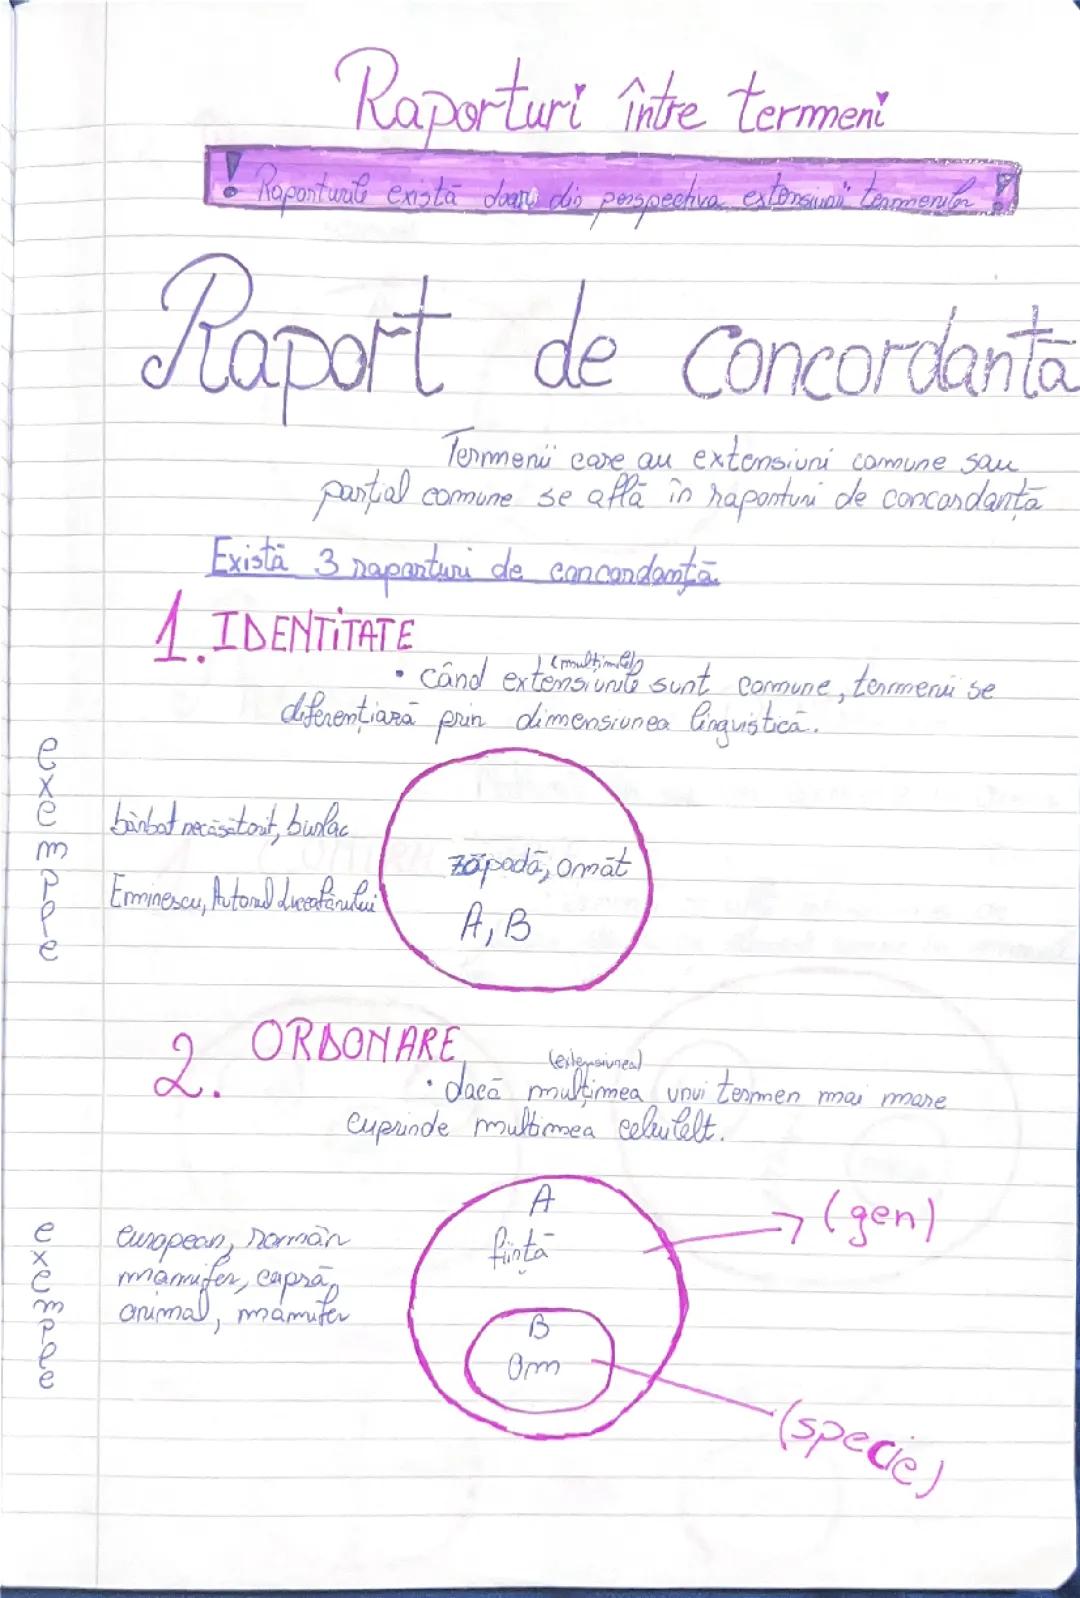 Raporturi între termeni
! Raporturile există doar din perspectiva extensiunii termenilor !
Raport de concordanță
Termenii care au extensiuni comune sau
parțial comune se află în raporturi de concordanță
Există 3 raporturi de concordanță
1. IDENTITATE
(mulțimile)
• când extensiunile sunt comune, termenii se
diferențiază prin dimensiunea lingvistică.
exemple
bărbat necăsătorit, burlac
zăpadă, omăt
Eminescu, Autorul Luceafărului
A, B
2. ORDONARE
(extensiunea)
• dacă mulțimea unui termen mai mare
cuprinde multimea celuilalt.
A
(gen)
exemple
european, român
ființă
mamifer, capră,
animal, mamifer
B
Om
(specie)